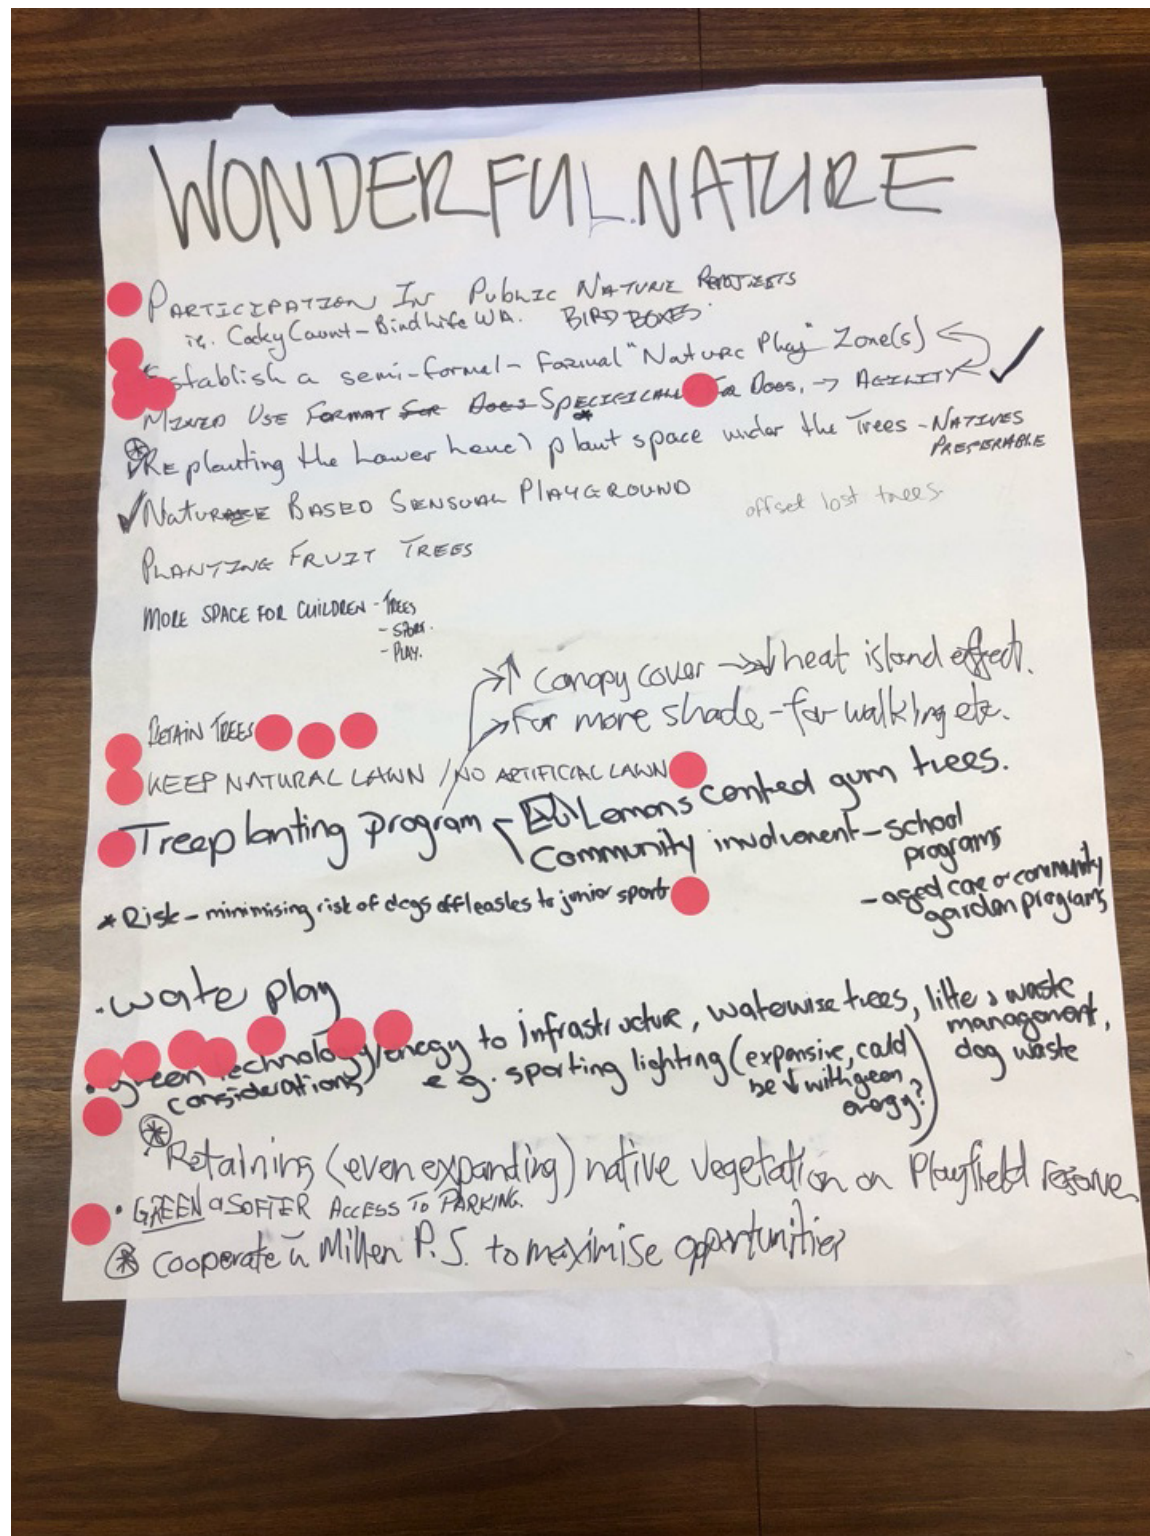 WONDERFUL NATURE
PARTICIPATION IN PUBLIC NATURE PROJECTS
ie. Cocky Count - Birdlife WA. BIRD BOXES.
Establish a semi-formal - Formal "Nature Play" Zone(s)
MIXED USE FORMAT for Dogs SPECIFICALLY Dogs, → AGILITY
REplanting the lower level plant space under the Trees - NATIVES
PREFERABLE
NATURE BASED SENSUAL PLAYGROUND
offset lost trees.
PLANTING FRUIT TREES
MORE SPACE FOR CHILDREN - TREES
- SPORT.
- PLAY.
↑ canopy cover → ↓ heat island effect.
→ For more shade - for walking etc.
RETAIN TREES
KEEP NATURAL LAWN / NO ARTIFICIAL LAWN
Treeplanting program - Lemons cented gum trees.
Community involvment - school
programs
- aged care or community
garden programs
* Risk - minimising risk of dogs offleashes to junior sports
. wate play
. green technology/enegy to infrastructure, waterwise trees, litte & waste
management,
dog waste
considerations e.g. sporting lighting (expensive, could
be ↓ with green
energy?)
* Retaining (even expanding) native vegetation on Playfield reserve
. GREEN & SOFTER ACCESS TO PARKING.
* cooperate Millen P.S. to maximise opportunities